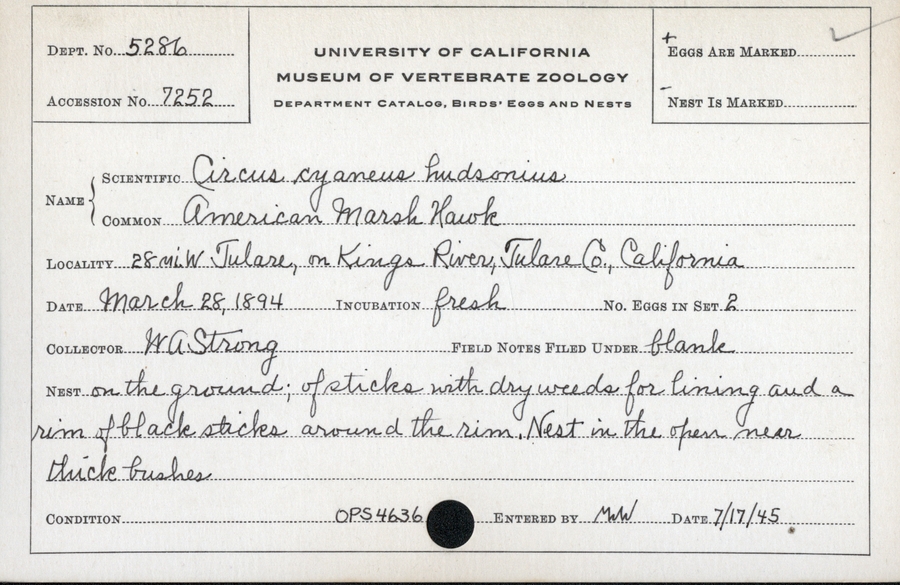 DEPT. NO. 5286
ACCESSION NO. 7252
UNIVERSITY OF CALIFORNIA
MUSEUM OF VERTEBRATE ZOOLOGY
DEPARTMENT CATALOG, BIRDS' EGGS AND NESTS
+ EGGS ARE MARKED ✓
- NEST IS MARKED
NAME { SCIENTIFIC Circus cyaneus hudsonius
COMMON American Marsh Hawk
LOCALITY 28 mi. W Tulare, on Kings River, Tulare Co., California
DATE March 28, 1894 INCUBATION fresh NO. EGGS IN SET 2
COLLECTOR W A Strong FIELD NOTES FILED UNDER blank
NEST on the ground; of sticks with dry weeds for lining and a
rim of black sticks around the rim. Nest in the open near
thick bushes
CONDITION OPS4636 ENTERED BY MWW DATE 7/17/45